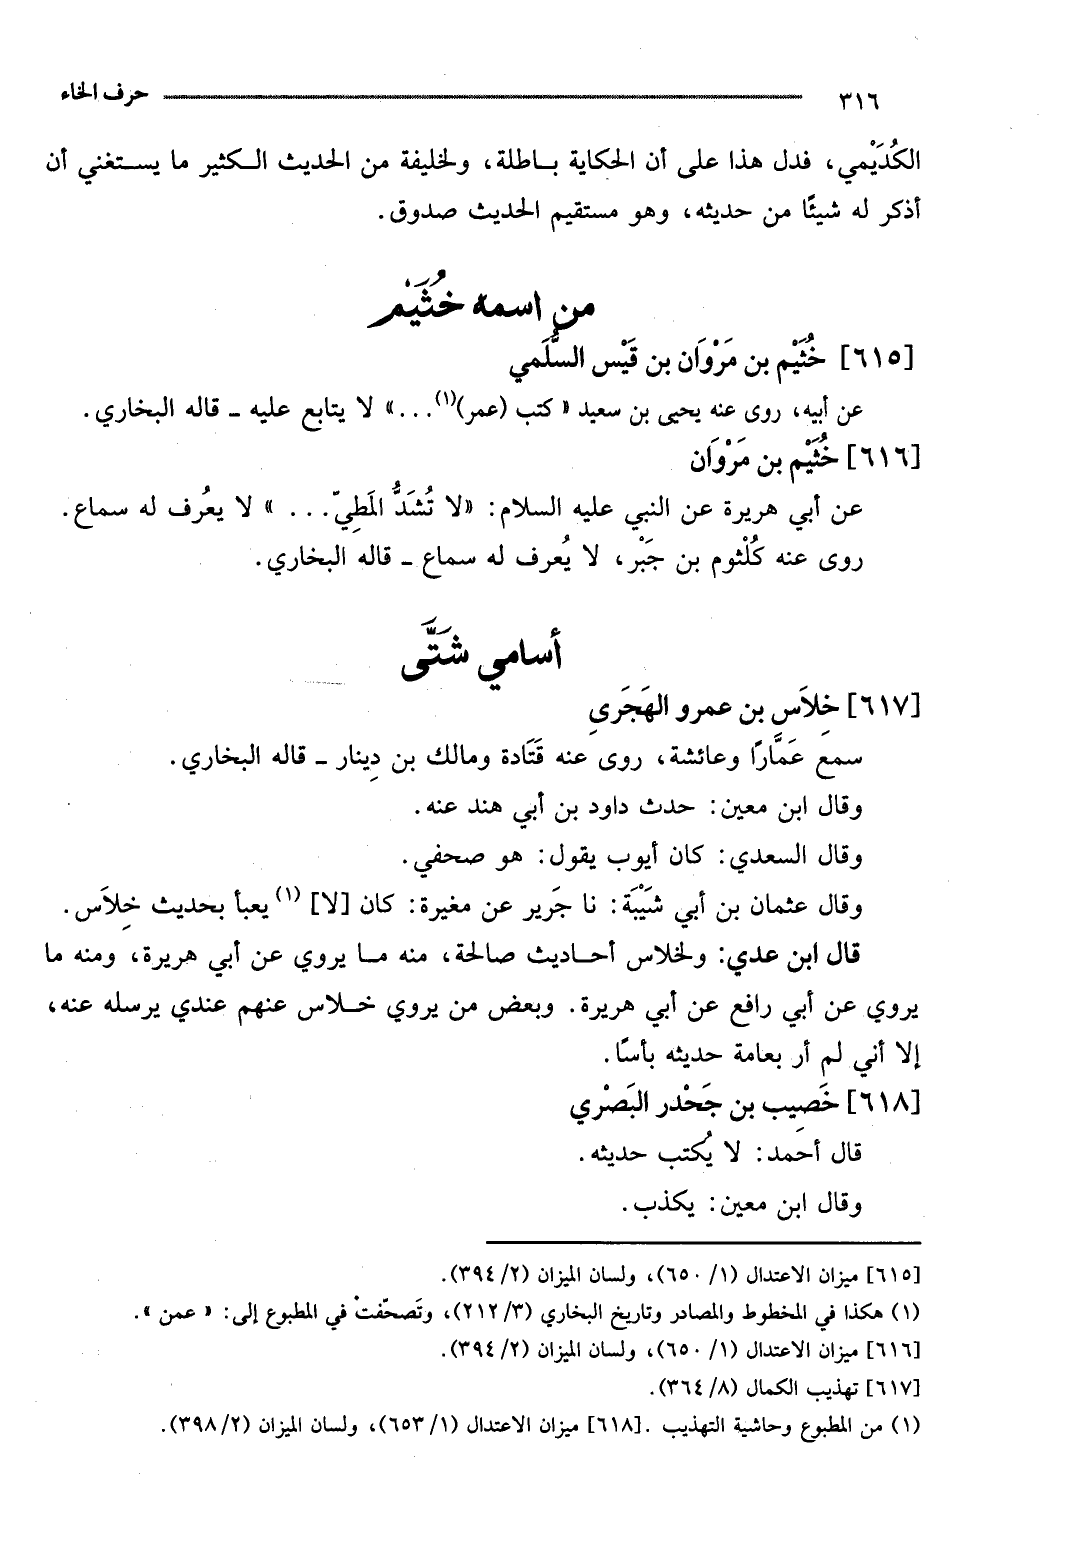 ٣١٦ حرف الخاء
الكُدَيْمي، فدل هذا على أن الحكاية باطلة، ولخليفة من الحديث الكثير ما يستغني أن
أذكر له شيئًا من حديثه، وهو مستقيم الحديث صدوق.
من اسمه خُثَيْم
[٦١٥] خُثَيْم بن مَرْوَان بن قَيْس السُّلَمي
عن أبيه، روى عنه يحيى بن سعيد « كتب (عمر)(١)...» لا يتابع عليه ـ قاله البخاري.
[٦١٦] خُثَيْم بن مَرْوَان
عن أبي هريرة عن النبي عليه السلام: «لا تُشَدُّ المَطِيّ... » لا يعُرف له سماع.
روى عنه كُلْثوم بن جَبْر، لا يُعرف له سماع ـ قاله البخاري.
أسامي شَتَّى
[٦١٧] خِلاَس بن عمرو الهَجَرِي
سمع عَمَّارًا وعائشة، روى عنه قَتَادة ومالك بن دِينار ـ قاله البخاري.
وقال ابن معين: حدث داود بن أبي هند عنه.
وقال السعدي: كان أيوب يقول: هو صحفي.
وقال عثمان بن أبي شَيْبَة: نا جَرير عن مغيرة: كان [لا] (١) يعبأ بحديث خِلاَس.
قال ابن عدي: ولخلاس أحاديث صالحة، منه ما يروي عن أبي هريرة، ومنه ما
يروي عن أبي رافع عن أبي هريرة. وبعض من يروي خلاس عنهم عندي يرسله عنه،
إلا أني لم أر بعامة حديثه بأسًا.
[٦١٨] خَصِيب بن جَحْدر البَصْري
قال أحمد: لا يُكتب حديثه.
وقال ابن معين: يكذب.
[٦١٥] ميزان الاعتدال (١/ ٦٥٠)، ولسان الميزان (٢/ ٣٩٤).
(١) هكذا في المخطوط والمصادر وتاريخ البخاري (٣/ ٢١٢)، وتَصحّفتْ في المطبوع إلى: « عمن ».
[٦١٦] ميزان الاعتدال (١/ ٦٥٠)، ولسان الميزان (٢/ ٣٩٤).
[٦١٧] تهذيب الكمال (٨/ ٣٦٤).
(١) من المطبوع وحاشية التهذيب .[٦١٨] ميزان الاعتدال (١/ ٦٥٣)، ولسان الميزان (٢/ ٣٩٨).